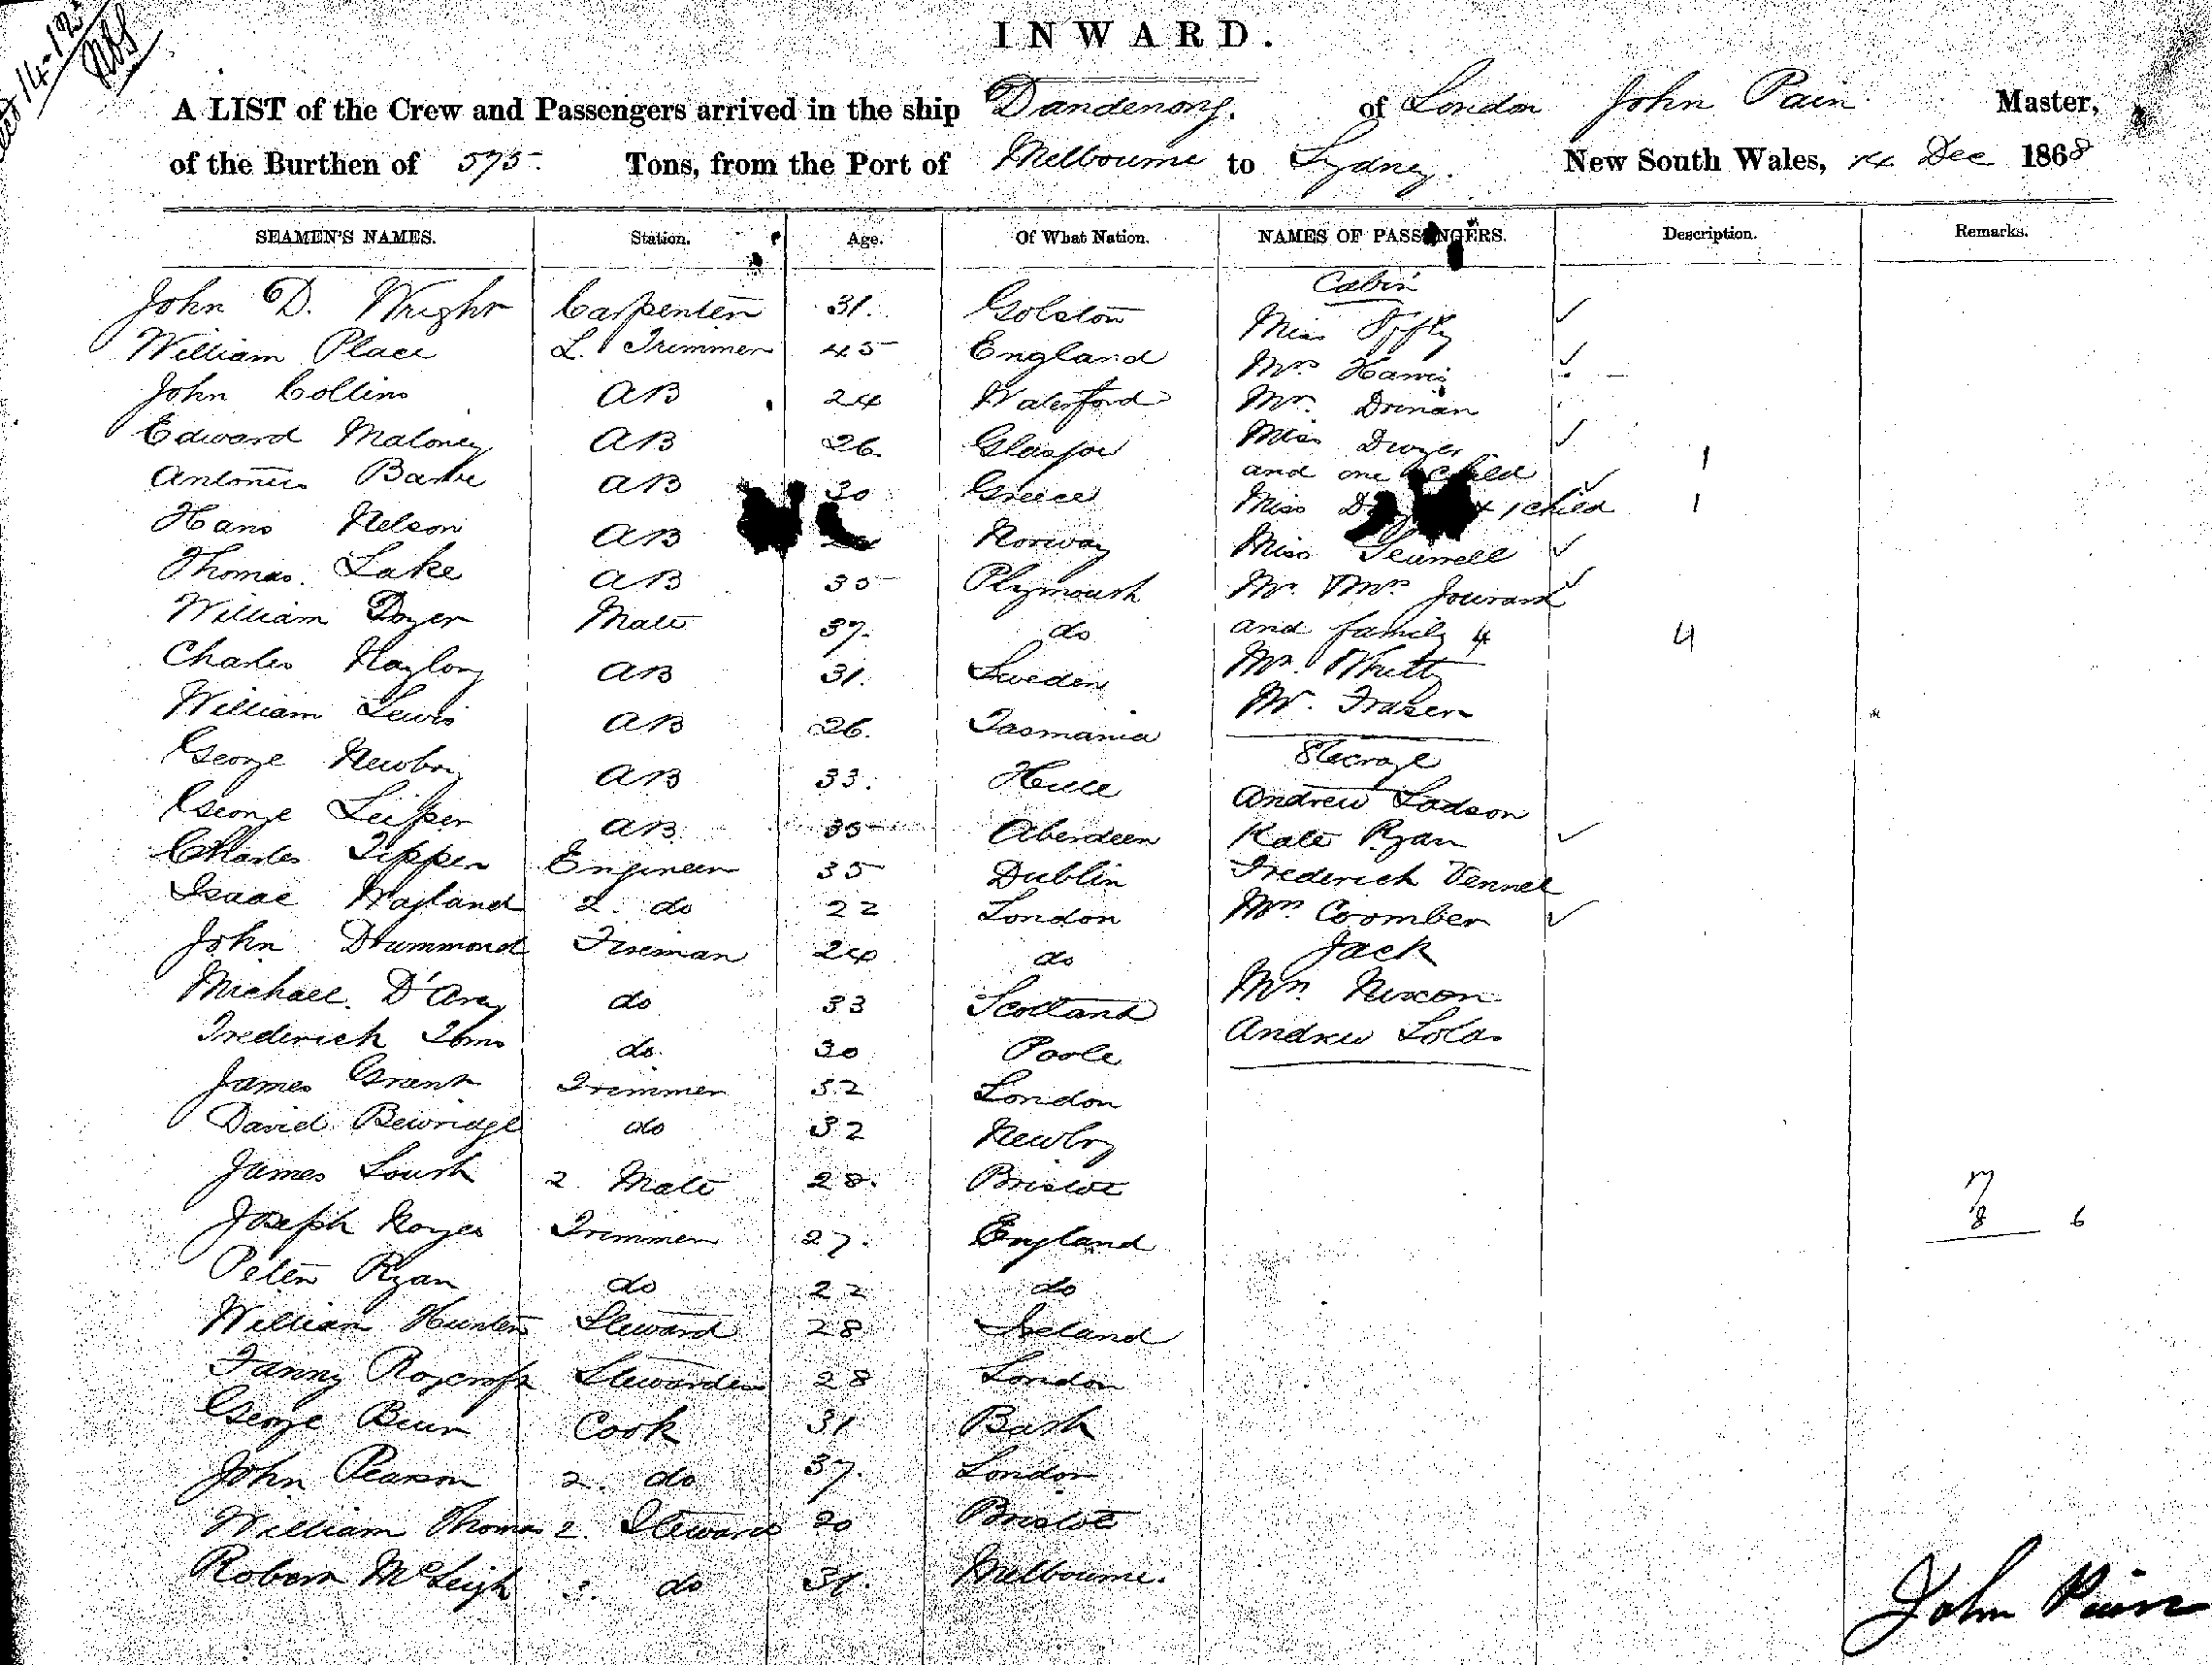 INWARD.
A LIST of the Crew and Passengers arrived in the ship Dandenong. of London John Pain Master,
of the Burthen of 575 Tons, from the Port of Melbourne to Sydney. New South Wales, 14 Dec 1868
SEAMEN'S NAMES. Station. Age. Of What Nation. NAMES OF PASSENGERS. Description. Remarks.
Cabin
John D. Wright Carpenter 31. Golston Miss
William Place L. Trimmer 45 England Mrs Harris
John Collins AB 24 Waterford Mr. Drinan
Edward Maloney AB 26. Glasgow Miss Dwyer
and one child 1
Antonio AB 30 Greece Miss + 1 child 1
Hans Nelson AB Norway Miss
Thomas Lake AB 35 Plymouth Mr. & Mrs
William Doyer Mate 37. do and family 4 4
Charles AB 31. Sweden Mr.
William Lewis AB 26. Tasmania Mr. Fraser
Steerage
George Newbry AB 33. Hull Andrew Ladson
George Leiper AB 35 Aberdeen Kate Ryan
Charles Tipper Engineer 35 Dublin Frederick Vennel
Isaac Wayland 2. do 22 London Mrs Coomber
John Drummond Fireman 24 do Jack
Michael D'Arcy do 33 Scotland Mr. Nixon
Frederick Toms do. 30 Poole Andrew
James Grant Trimmer 32 London
David Bewridge do 32 Newbry
James South 2 Mate 28. Bristol
7
Joseph Noyes Trimmer 27. England 8 6
Peter Ryan do 22 do
William Hunter Steward 28 Ireland
Fanny Roycroft Stewardess 28 London
George Cook 31 Bath
John Pearson 2. do 37. London
William Thomas 2. Steward 20 Bristol
Robert McLeigh 3. do 31. Melbourne.
John Pain